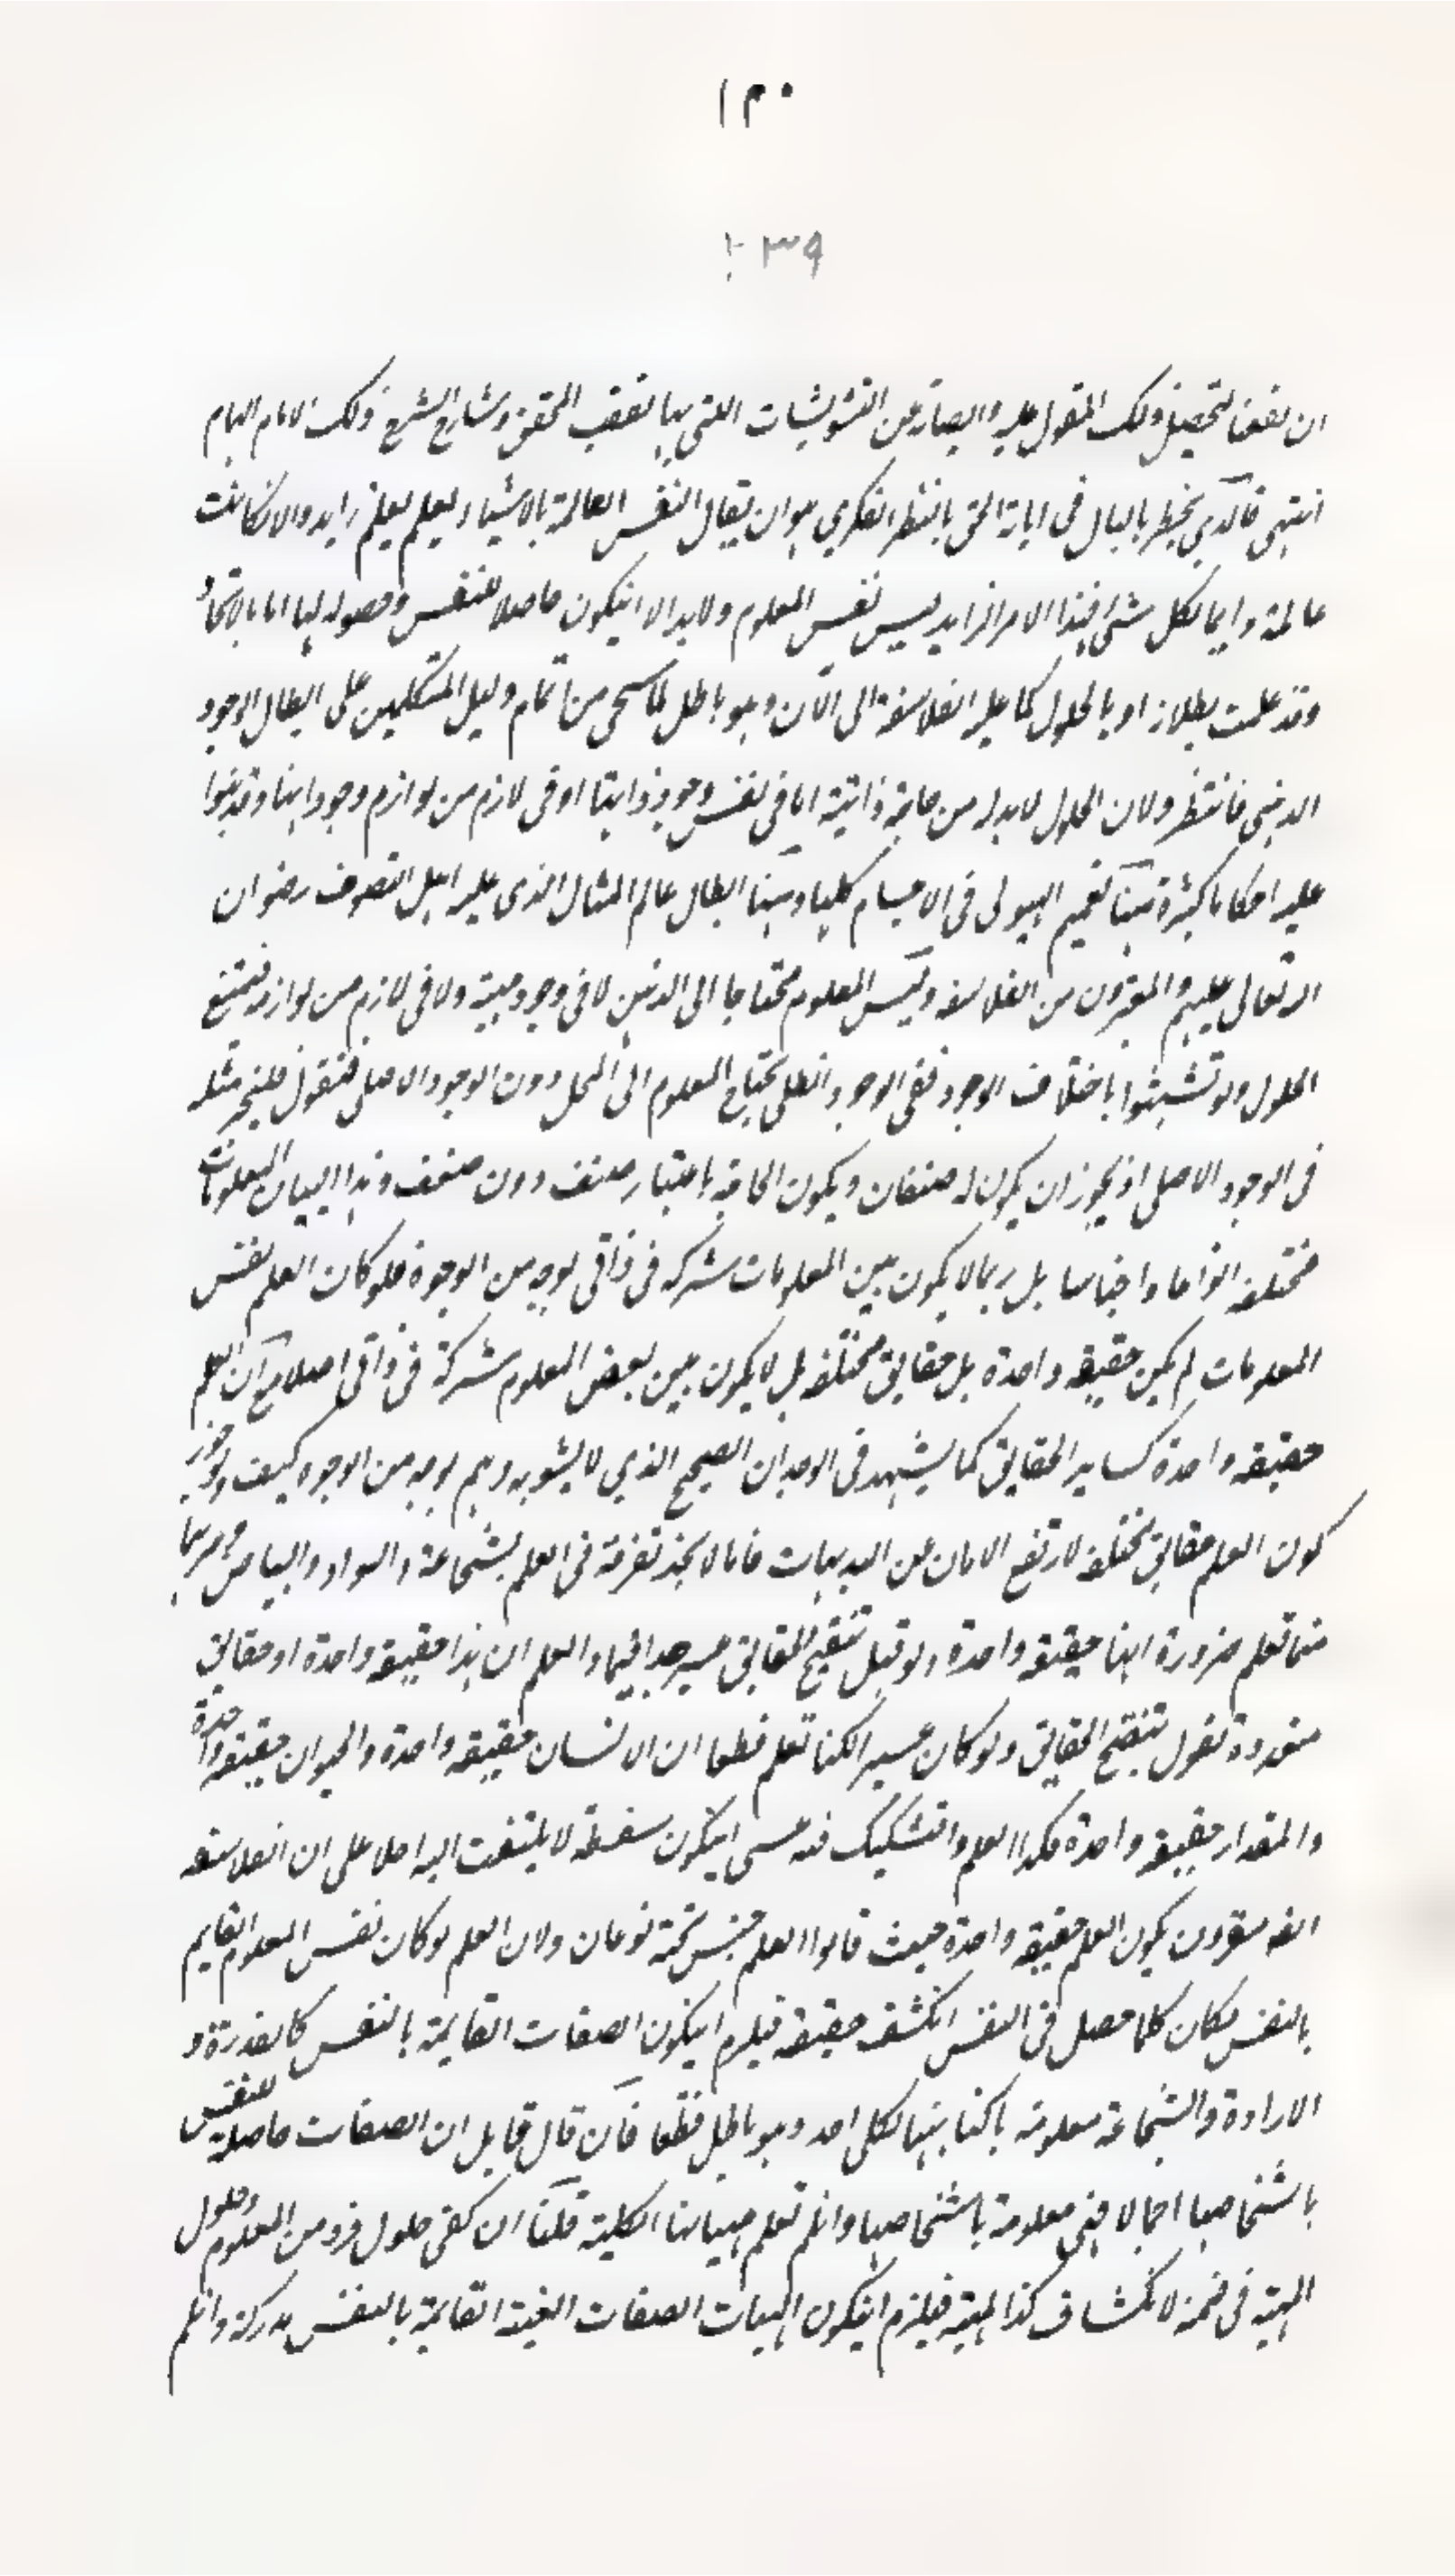 ١٣٠
١٣٩
ان يقصنا لتحصيل ذلك المقول عليه والصبار عن التشويشات التي بها تعقب المحقق وشارح الشرح ذلك الامام الهمام
انتهى فالذي يخطر بالبال في ابانة الحق بالنظر الفكري هو ان يقال النفس العالمة بالاشياء تعلم بعلم زايد والا لكانت
عالمة دايما لكل شئ فهذا الامر الزايد ليس نفس المعلوم ولابد الا ايكون حاصلا للنفس وحصوله لها اما بالاتحاد
وقد علمت بطلانه او بالحلول كما عليه الفلاسفة الى الآن وهو باطل لما سيجى من اتمام دليل المتكلمين على ابطال الوجود
الذهني فانتظر ولان الحلول لابد له من حاجة ذاتية اما في نفس وجود ذاتها او في لازم من لوازم وجودها وقد بنوا
عليه احكاما كثيرة منها تعميم الهيولى في الاجسام كلها ومنها ابطال عالم المثال الذى عليه اهل التصوف رضوان
الله تعالى عليهم والمعتبرون من الفلاسفة وليس المعلوم محتاجا الى الذهن لا في وجود مهيته ولا في لازم من لوازمه فيمتنع
الحلول ولو تشبثوا باختلاف الوجود ففي الوجود الظلي يحتاج المعلوم الى المحل دون الوجود الاصلي فنقول فليجز مثله
في الوجود الاصلي اذ يجوز ان يكون له صنفان ويكون الحاجة باعتبار صنف دون صنف وهذا البيان المعلومات
مختلفة انواعا واجناسا بل ربما لا يكون بين المعلومات شركة في ذاتي بوجه من الوجوه فلو كان العلم نفس
المعلومات لم يكن حقيقة واحدة بل حقايق مختلفة بل لا يكون بين بعض المعلوم شركة في ذاتي اصلا مع ان العلم
حقيقة واحدة كساير الحقايق كما يشهد في الوجدان الصحيح الذي لا يشوبه وهم بوجه من الوجوه كيف ولو جوز
كون العلم حقايق مختلفة لارتفع الامان عن البديهيات فانا لا نجد تفرقة في العلم بشجاعة والسواد والبياض وغيرهما
مما نعلم ضرورة انها حقيقة واحدة ولو قيل تنقيح الحقايق عسير جدا فيما والعلم ان هذا حقيقة واحدة او حقايق
متعددة نقول تنقيح الحقايق ولو كان عسيرا لكنا نعلم قطعا ان الانسان حقيقة واحدة والحيوان حقيقة واحدة
والمقدار حقيقة واحدة فكذا العلم والتشكيك فيه عسى ايكون سفسطة لا يلتفت اليه اصلا على ان الفلاسفة
ايضا مقرون بكون العلم حقيقة واحدة حيث قالوا العلم جنس تحته نوعان ولان العلم لو كان نفس المعلوم القايم
بالنفس لكان كلما حصل في النفس انكشف حقيقته فيلزم ايكون الصفات القايمة بالنفس كالقدرة و
الارادة والشجاعة معلومة باكناهها لكل احد وهو باطل قطعا فان قال قايل ان الصفات حاصلة للنفس
باشخاصها اجمالا فهي معلومة باشخاصها وان لم تعلم مهياتها الكلية قلنا ان كفى حلول فرد من المعلوم وحلول
المهية في ضمنه لانكشاف كذا المهية فيلزم ايكون المهيات الصفات العينية القايمة بالنفس مدركة وان لم